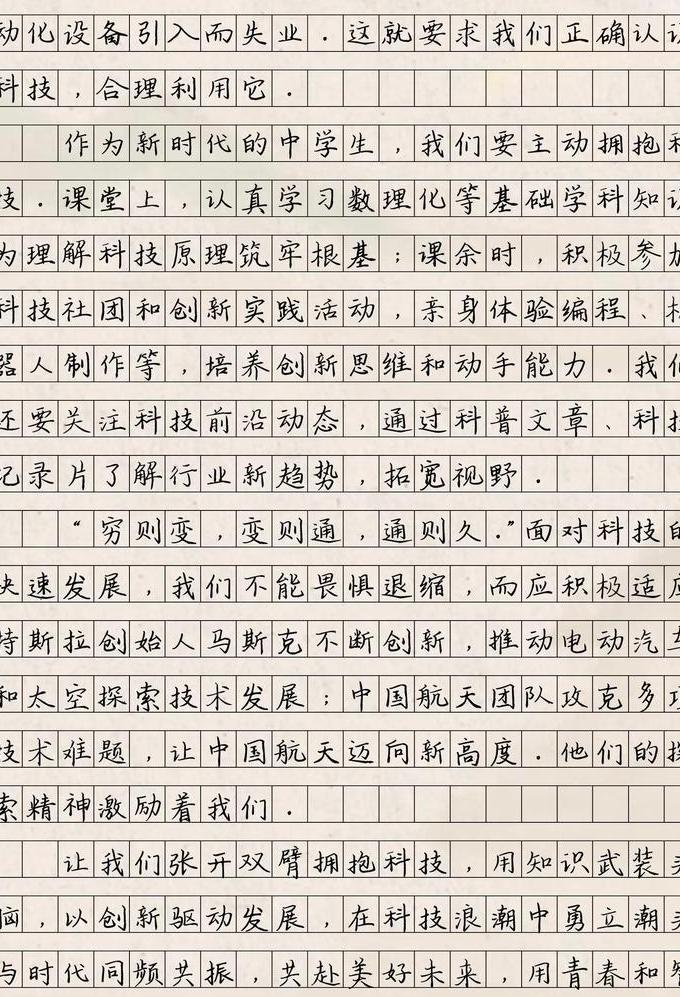 动化设备引入而失业．这就要求我们正确认识
科技，合理利用它．
作为新时代的中学生，我们要主动拥抱科
技．课堂上，认真学习数理化等基础学科知识
为理解科技原理筑牢根基；课余时，积极参加
科技社团和创新实践活动，亲身体验编程、机
器人制作等，培养创新思维和动手能力．我们
还要关注科技前沿动态，通过科普文章、科技
记录片了解行业新趋势，拓宽视野．
“穷则变，变则通，通则久．”面对科技的
快速发展，我们不能畏惧退缩，而应积极适应
特斯拉创始人马斯克不断创新，推动电动汽车
和太空探索技术发展；中国航天团队攻克多项
技术难题，让中国航天迈向新高度．他们的探
索精神激励着我们．
让我们张开双臂拥抱科技，用知识武装头
脑，以创新驱动发展，在科技浪潮中勇立潮头
与时代同频共振，共赴美好未来，用青春和智